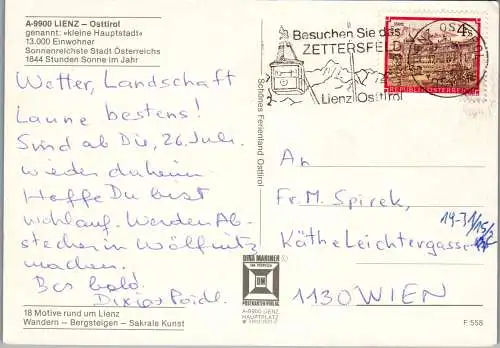 A-9900 LIENZ – Osttirol
genannt: »kleine Hauptstadt«
13.000 Einwohner
Sonnenreichste Stadt Österreichs
1844 Stunden Sonne im Jahr
Wetter, Landschaft
Laune bestens!
Sind ab Die, 26. Juli
wieder daheim
Hoffe Du bist
wohlauf. Werden Ab-
stecher in Wölfnitz
machen.
Bis bald
18 Motive rund um Lienz
Wandern – Bergsteigen – Sakrale Kunst
Schönes Ferienland Osttirol
Besuchen Sie das
ZETTERSFELD
Lienz Osttirol
4 S
REPUBLIK ÖSTERREICH
An
Fr. M. Spirek,
19-31/15/2
Käthe Leichtergasse
1130 WIEN
DINA MARINER
DM
POSTKARTEN-VERLAG
A-9900 LIENZ
HAUPTPLATZ
F 558